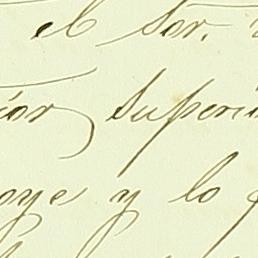 el Sor.
ior Superi
oye y lo